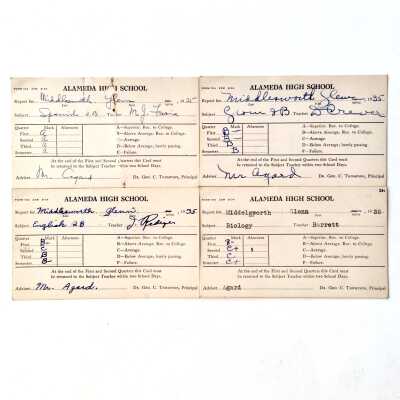 ALAMEDA HIGH SCHOOL
Report for Middlesworth Glenn 1935
Subject Spanish 2B Teacher M. J.
Quarter Mark Absences A—Superior. Rec. to College.
First B—Above Average. Rec. to College.
Second C—Average.
Third D—Below Average, barely passing.
Semester F—Failure.
At the end of the First and Second Quarters this Card must
be returned to the Subject Teacher within two School Days.
Adviser Mr. Agard Dr. Geo. C. Thompson, Principal
ALAMEDA HIGH SCHOOL
Report for Middlesworth Glenn 1935
Subject Geom 2B Teacher
Quarter Mark Absences A—Superior. Rec. to College.
First B B—Above Average. Rec. to College.
Second C—Average.
Third B D—Below Average, barely passing.
Semester B F—Failure.
At the end of the First and Second Quarters this Card must
be returned to the Subject Teacher within two School Days.
Adviser Mr Agard Dr. Geo. C. Thompson, Principal
ALAMEDA HIGH SCHOOL
Report for Middlesworth Glenn 1935
Subject English 2B Teacher J.
Quarter Mark Absences A—Superior. Rec. to College.
First B B—Above Average. Rec. to College.
Second C—Average.
Third B D—Below Average, barely passing.
Semester B F—Failure.
At the end of the First and Second Quarters this Card must
be returned to the Subject Teacher within two School Days.
Adviser Mr. Agard. Dr. Geo. C. Thompson, Principal
ALAMEDA HIGH SCHOOL
Report for Middelsworth Glenn
Subject Biology Teacher Barrett
Quarter Mark Absences A—Superior. Rec. to College.
First B- B—Above Average. Rec. to College.
Second C+ C—Average.
Third C D—Below Average, barely passing.
Semester C+ F—Failure.
At the end of the First and Second Quarters this Card must
be returned to the Subject Teacher within two School Days.
Adviser Agard Dr. Geo. C. Thompson, Principal